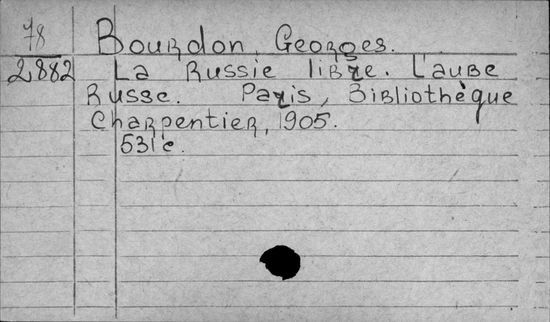 78 Bourdon, Georges.
2882 La Russie libre. L'aube
Russe. Paris, Bibliothèque
Charpentier, 1905.
531 c.